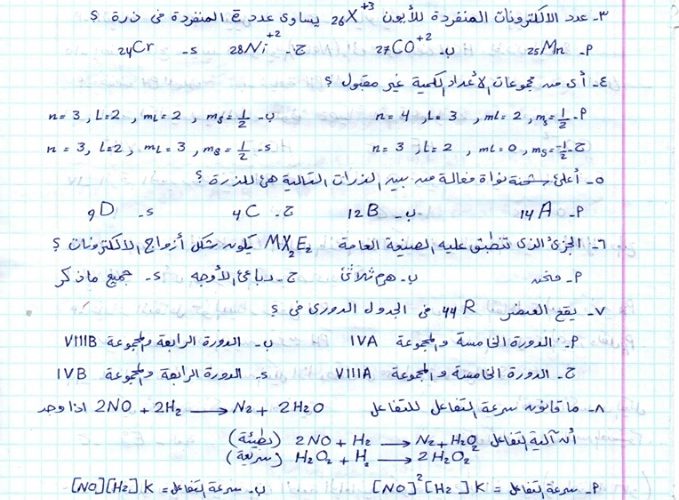 ٣- عدد الالكترونات المنفردة للأيون 26X+3 يساوي عدد e المنفردة في ذرة ؟
أ- 25Mn ب- 27CO+2 ج- 28Ni+2 د- 24Cr
٤- أي من مجموعات الأعداد الكمية غير مقبول ؟
أ- n = 4, L = 3, ml = 2, ms = 1/2 ب- n = 3, L = 2, ml = 2, ms = 1/2
ج- n = 3, L = 2, ml = 0, ms = -1/2 د- n = 3, L = 2, mL = 3, ms = 1/2
٥- أعلى شحنة نواة فعالة من بين الذرات التالية هي للذرة ؟
أ- 14A ب- 12B ج- 4C د- 9D
٦- الجزئ الذي تنطبق عليه الصيغة العامة MX2E2 يكون شكل أزواج الالكترونات ؟
أ- منحن ب- هرم ثلاثي ج- رباعي الأوجه د- جميع ماذكر
٧- يقع العنصر 44R في الجدول الدوري في ؟
أ- الدورة الخامسة والمجموعة IVA ب- الدورة الرابعة والمجموعة VIIIB
ج- الدورة الخامسة والمجموعة VIIIA د- الدورة الرابعة والمجموعة IVB
٨- ما قانون سرعة التفاعل للتفاعل 2NO + 2H2 → N2 + 2H2O اذا وجد
أن آلية التفاعل 2NO + H2 → N2 + H2O2 (بطيئة)
H2O2 + H2 → 2H2O2 (سريعة)
أ- سرعة التفاعل = [NO]2[H2] K ب- سرعة التفاعل = [NO][H2] K